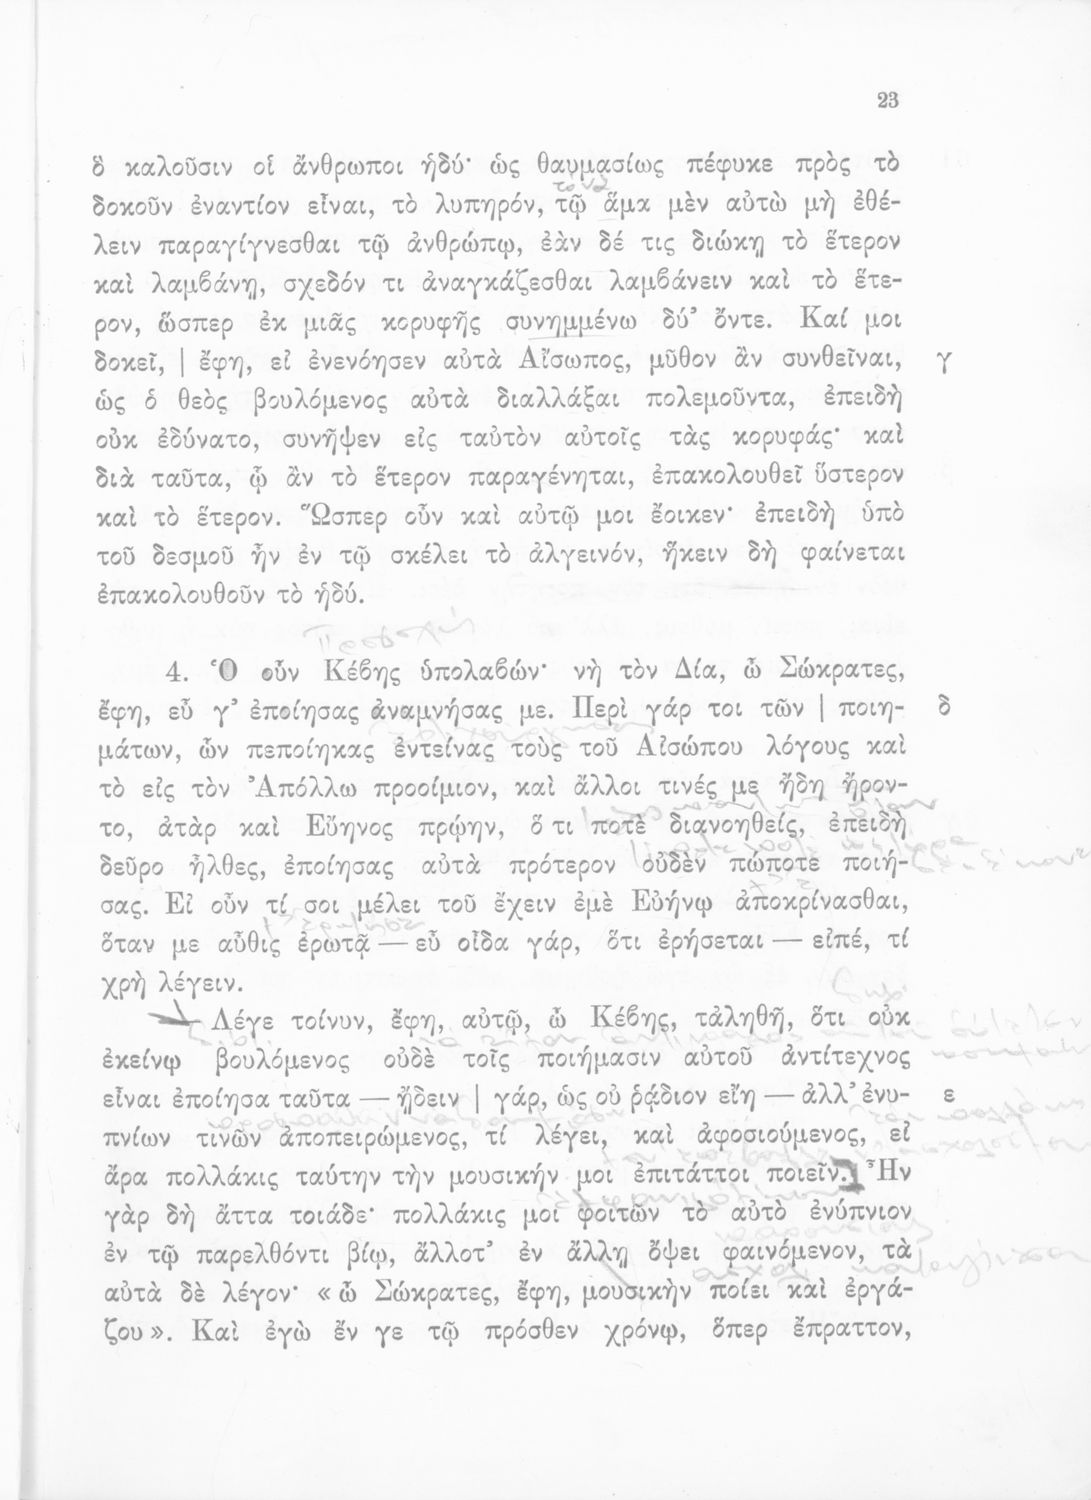 23
ὃ καλοῦσιν οἱ ἄνθρωποι ἡδύ· ὡς θαυμασίως πέφυκε πρὸς τὸ
δοκοῦν ἐναντίον εἶναι, τὸ λυπηρόν, τῷ ἅμα μὲν αὐτὼ μὴ ἐθέ-
λειν παραγίγνεσθαι τῷ ἀνθρώπῳ, ἐὰν δέ τις διώκῃ τὸ ἕτερον
καὶ λαμβάνῃ, σχεδόν τι ἀναγκάζεσθαι λαμβάνειν καὶ τὸ ἕτε-
ρον, ὥσπερ ἐκ μιᾶς κορυφῆς συνημμένω δύ’ ὄντε. Καί μοι
δοκεῖ, | ἔφη, εἰ ἐνενόησεν αὐτὰ Αἴσωπος, μῦθον ἂν συνθεῖναι, γ
ὡς ὁ θεὸς βουλόμενος αὐτὰ διαλλάξαι πολεμοῦντα, ἐπειδὴ
οὐκ ἐδύνατο, συνῆψεν εἰς ταὐτὸν αὐτοῖς τὰς κορυφάς· καὶ
διὰ ταῦτα, ᾧ ἂν τὸ ἕτερον παραγένηται, ἐπακολουθεῖ ὕστερον
καὶ τὸ ἕτερον. Ὥσπερ οὖν καὶ αὐτῷ μοι ἔοικεν· ἐπειδὴ ὑπὸ
τοῦ δεσμοῦ ἦν ἐν τῷ σκέλει τὸ ἀλγεινόν, ἥκειν δὴ φαίνεται
ἐπακολουθοῦν τὸ ἡδύ.
4. Ὁ οὖν Κέβης ὑπολαβών· νὴ τὸν Δία, ὦ Σώκρατες,
ἔφη, εὖ γ’ ἐποίησας ἀναμνήσας με. Περὶ γάρ τοι τῶν | ποιη- δ
μάτων, ὧν πεποίηκας ἐντείνας τοὺς τοῦ Αἰσώπου λόγους καὶ
τὸ εἰς τὸν Ἀπόλλω προοίμιον, καὶ ἄλλοι τινές με ἤδη ἤρον-
το, ἀτὰρ καὶ Εὔηνος πρῴην, ὅ τι ποτὲ διανοηθείς, ἐπειδὴ
δεῦρο ἦλθες, ἐποίησας αὐτὰ πρότερον οὐδὲν πώποτε ποιή-
σας. Εἰ οὖν τί σοι μέλει τοῦ ἔχειν ἐμὲ Εὐήνῳ ἀποκρίνασθαι,
ὅταν με αὖθις ἐρωτᾷ — εὖ οἶδα γάρ, ὅτι ἐρήσεται — εἰπέ, τί
χρὴ λέγειν.
Λέγε τοίνυν, ἔφη, αὐτῷ, ὦ Κέβης, τἀληθῆ, ὅτι οὐκ
ἐκείνῳ βουλόμενος οὐδὲ τοῖς ποιήμασιν αὐτοῦ ἀντίτεχνος
εἶναι ἐποίησα ταῦτα — ᾔδειν | γάρ, ὡς οὐ ῥᾴδιον εἴη — ἀλλ’ ἐνυ- ε
πνίων τινῶν ἀποπειρώμενος, τί λέγει, καὶ ἀφοσιούμενος, εἰ
ἄρα πολλάκις ταύτην τὴν μουσικήν μοι ἐπιτάττοι ποιεῖν. Ἦν
γὰρ δὴ ἄττα τοιάδε· πολλάκις μοι φοιτῶν τὸ αὐτὸ ἐνύπνιον
ἐν τῷ παρελθόντι βίῳ, ἄλλοτ’ ἐν ἄλλῃ ὄψει φαινόμενον, τὰ
αὐτὰ δὲ λέγον· « ὦ Σώκρατες, ἔφη, μουσικὴν ποίει καὶ ἐργά-
ζου ». Καὶ ἐγὼ ἔν γε τῷ πρόσθεν χρόνῳ, ὅπερ ἔπραττον,